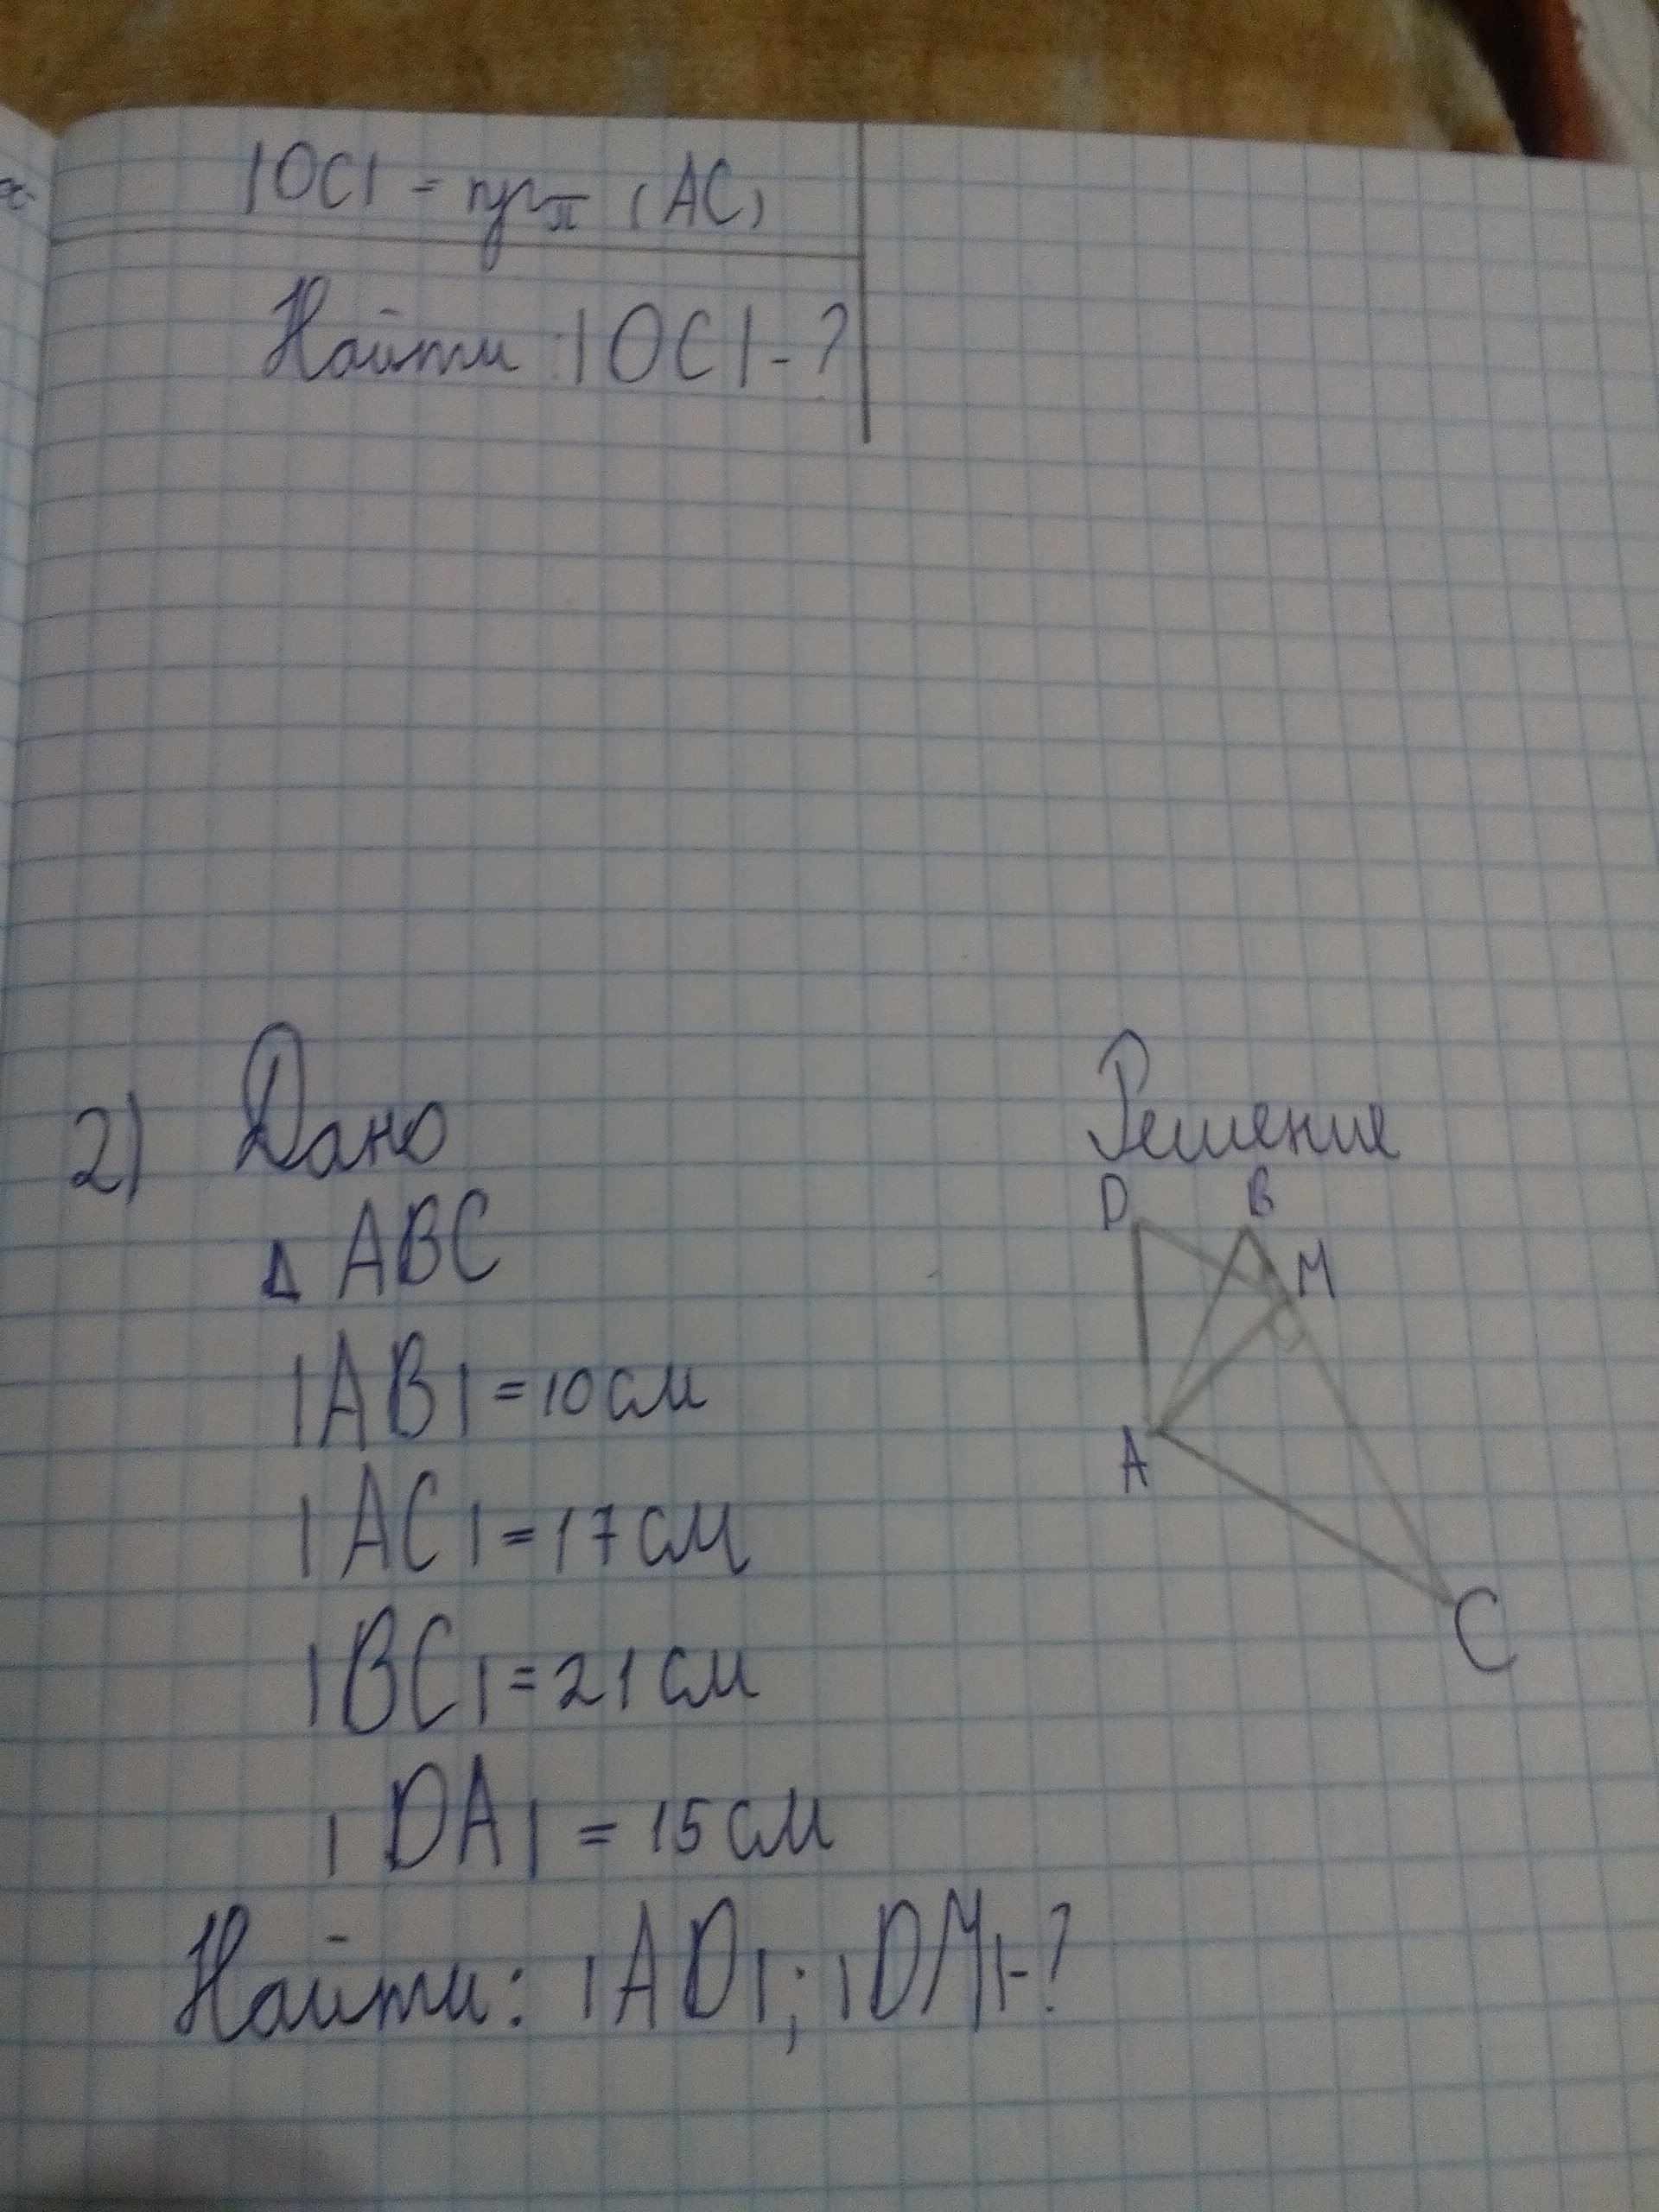 |OC| = пр_π (AC)
Найти: |OC| - ?
2) Дано
Решение
Δ ABC
|AB| = 10 см
|AC| = 17 см
|BC| = 21 см
|DA| = 15 см
Найти: |AD|; |DM| - ?
D
B
M
A
C